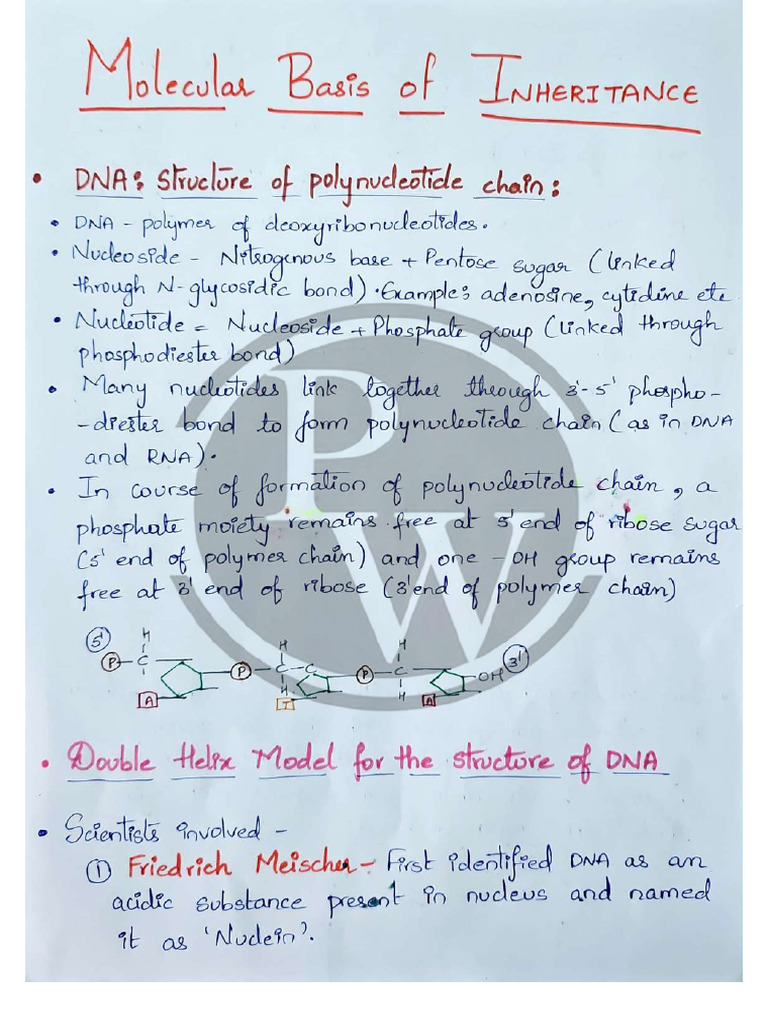 Molecular Basis of INHERITANCE
• DNA: Structure of polynucleotide chain:
• DNA - polymer of deoxyribonucleotides.
• Nucleoside - Nitrogenous base + Pentose sugar (linked
through N-glycosidic bond). Example: adenosine, cytidine etc
• Nucleotide = Nucleoside + Phosphate group (linked through
phosphodiester bond)
• Many nucleotides link together through 3'-5' phospho-
-diester bond to form polynucleotide chain (as in DNA
and RNA).
• In course of formation of polynucleotide chain, a
phosphate moiety remains free at 5' end of ribose sugar
(5' end of polymer chain) and one -OH group remains
free at 3' end of ribose (3' end of polymer chain)
5' H H H 3'
P C P C C P C OH
H H
A T A
PW
• Double Helix Model for the structure of DNA
• Scientists involved -
① Friedrich Meischer - First identified DNA as an
acidic substance present in nucleus and named
it as 'Nuclein'.